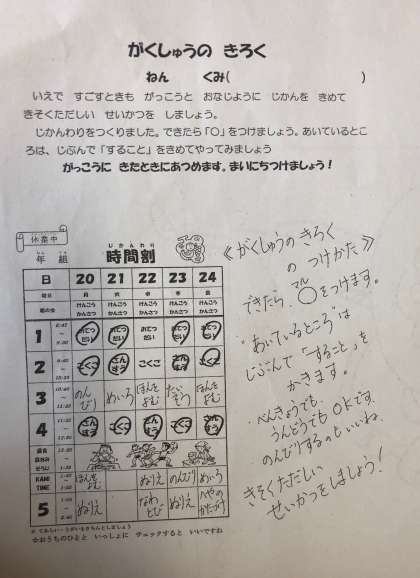 がくしゅうの きろく
ねん くみ( )
いえで すごすときも がっこうと おなじように じかんを きめて
きそくただしい せいかつを しましょう。
じかんわりをつくりました。できたら「○」をつけましょう。あいているとこ
ろは、じぶんで「すること」をきめてやってみましょう
がっこうに きたときにあつめます。まいにちつけましょう!
休業中
年 組 時間割
じかんわり
日 20 21 22 23 24
曜日 月 火 水 木 金
朝の会 けんこうかんさつ けんこうかんさつ けんこうかんさつ けんこうかんさつ けんこうかんさつ
1 おてつだい おてつだい おてつだい おてつだい おてつだい
2 こくご さんすう こくご さんすう こくご
3 のんびり めいろ ほんをよむ たいそう ほんをよむ
4 さんすう こくご さんすう こくご さんすう
KAMI TIME ほんをよむ ぬりえ のんびり めいろ
5 ぬりえ なわとび ぬりえ へやのかたづけ
☆おうちのひとと いっしょに チェックすると いいですね
≪がくしゅうの きろく
の つけかた≫
できたら、○をつけます。
マル
・あいているところは
じぶんで「すること」を
かきます。
・べんきょうでも、
うんどうでもOKです。
のんびりするのもいいね。
きそくただしい
せいかつをしましょう!